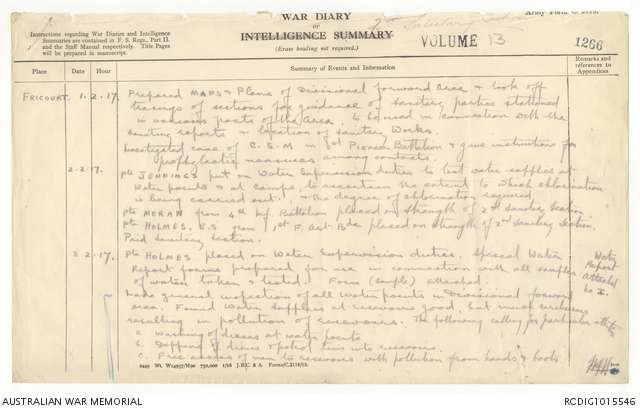 WAR DIARY
or
INTELLIGENCE SUMMARY
(Erase heading not required.)
2nd Sanitary Section
Army Form C. 2118.
VOLUME 13
1266
Instructions regarding War Diaries and Intelligence
Summaries are contained in F. S. Regs., Part II.
and the Staff Manual respectively. Title Pages
will be prepared in manuscript.
Place Date Hour Summary of Events and Information Remarks and references to Appendices
FRICOURT. 1.2.17. Prepared MAPS & Plans of Divisional forward area & took off
tracings of sections for guidance of sanitary parties stationed
in various parts of the area, to be used in connection with the
sanitary reports & location of sanitary works.
Investigated case of C.S.M in 1st Pioneer Battalion & gave instructions for
prophylactic measures among contacts.
2-2-17. Pte JENNINGS put on Water Supervision duties to test water supplies at
Water points & at camps, to ascertain the extent to which chlorination
is being carried out, & the degree of chlorination required.
Pte MERAN from 4th Inf. Battalion placed on strength of 2nd Sanitary Section
Pte HOLMES. E.S from 1st F. Art. Bde placed on strength of 2nd Sanitary Section.
Paid sanitary section.
3-2-17. Pte HOLMES placed on Water Supervision duties. Special Water
Report forms prepared for use in connection with all samples
of water taken & tested. Form (sample) attached.
Water Report attached No I.
Made general inspection of all Water points in Divisional forward
area. Found Water supplies at reservoirs good, but much carelessness
resulting in pollution of reservoirs. The following calling for particular attention
a. Washing of dixies at water points
b. Dipping of dixies & petrol tins into reservoirs.
c. Free access of men to reservoirs with pollution from hands & boots
2449 Wt. W14957/M90 750,000 1/16 J.B.C. & A. Forms/C.2118/12.
AUSTRALIAN WAR MEMORIAL
RCDIG1015546